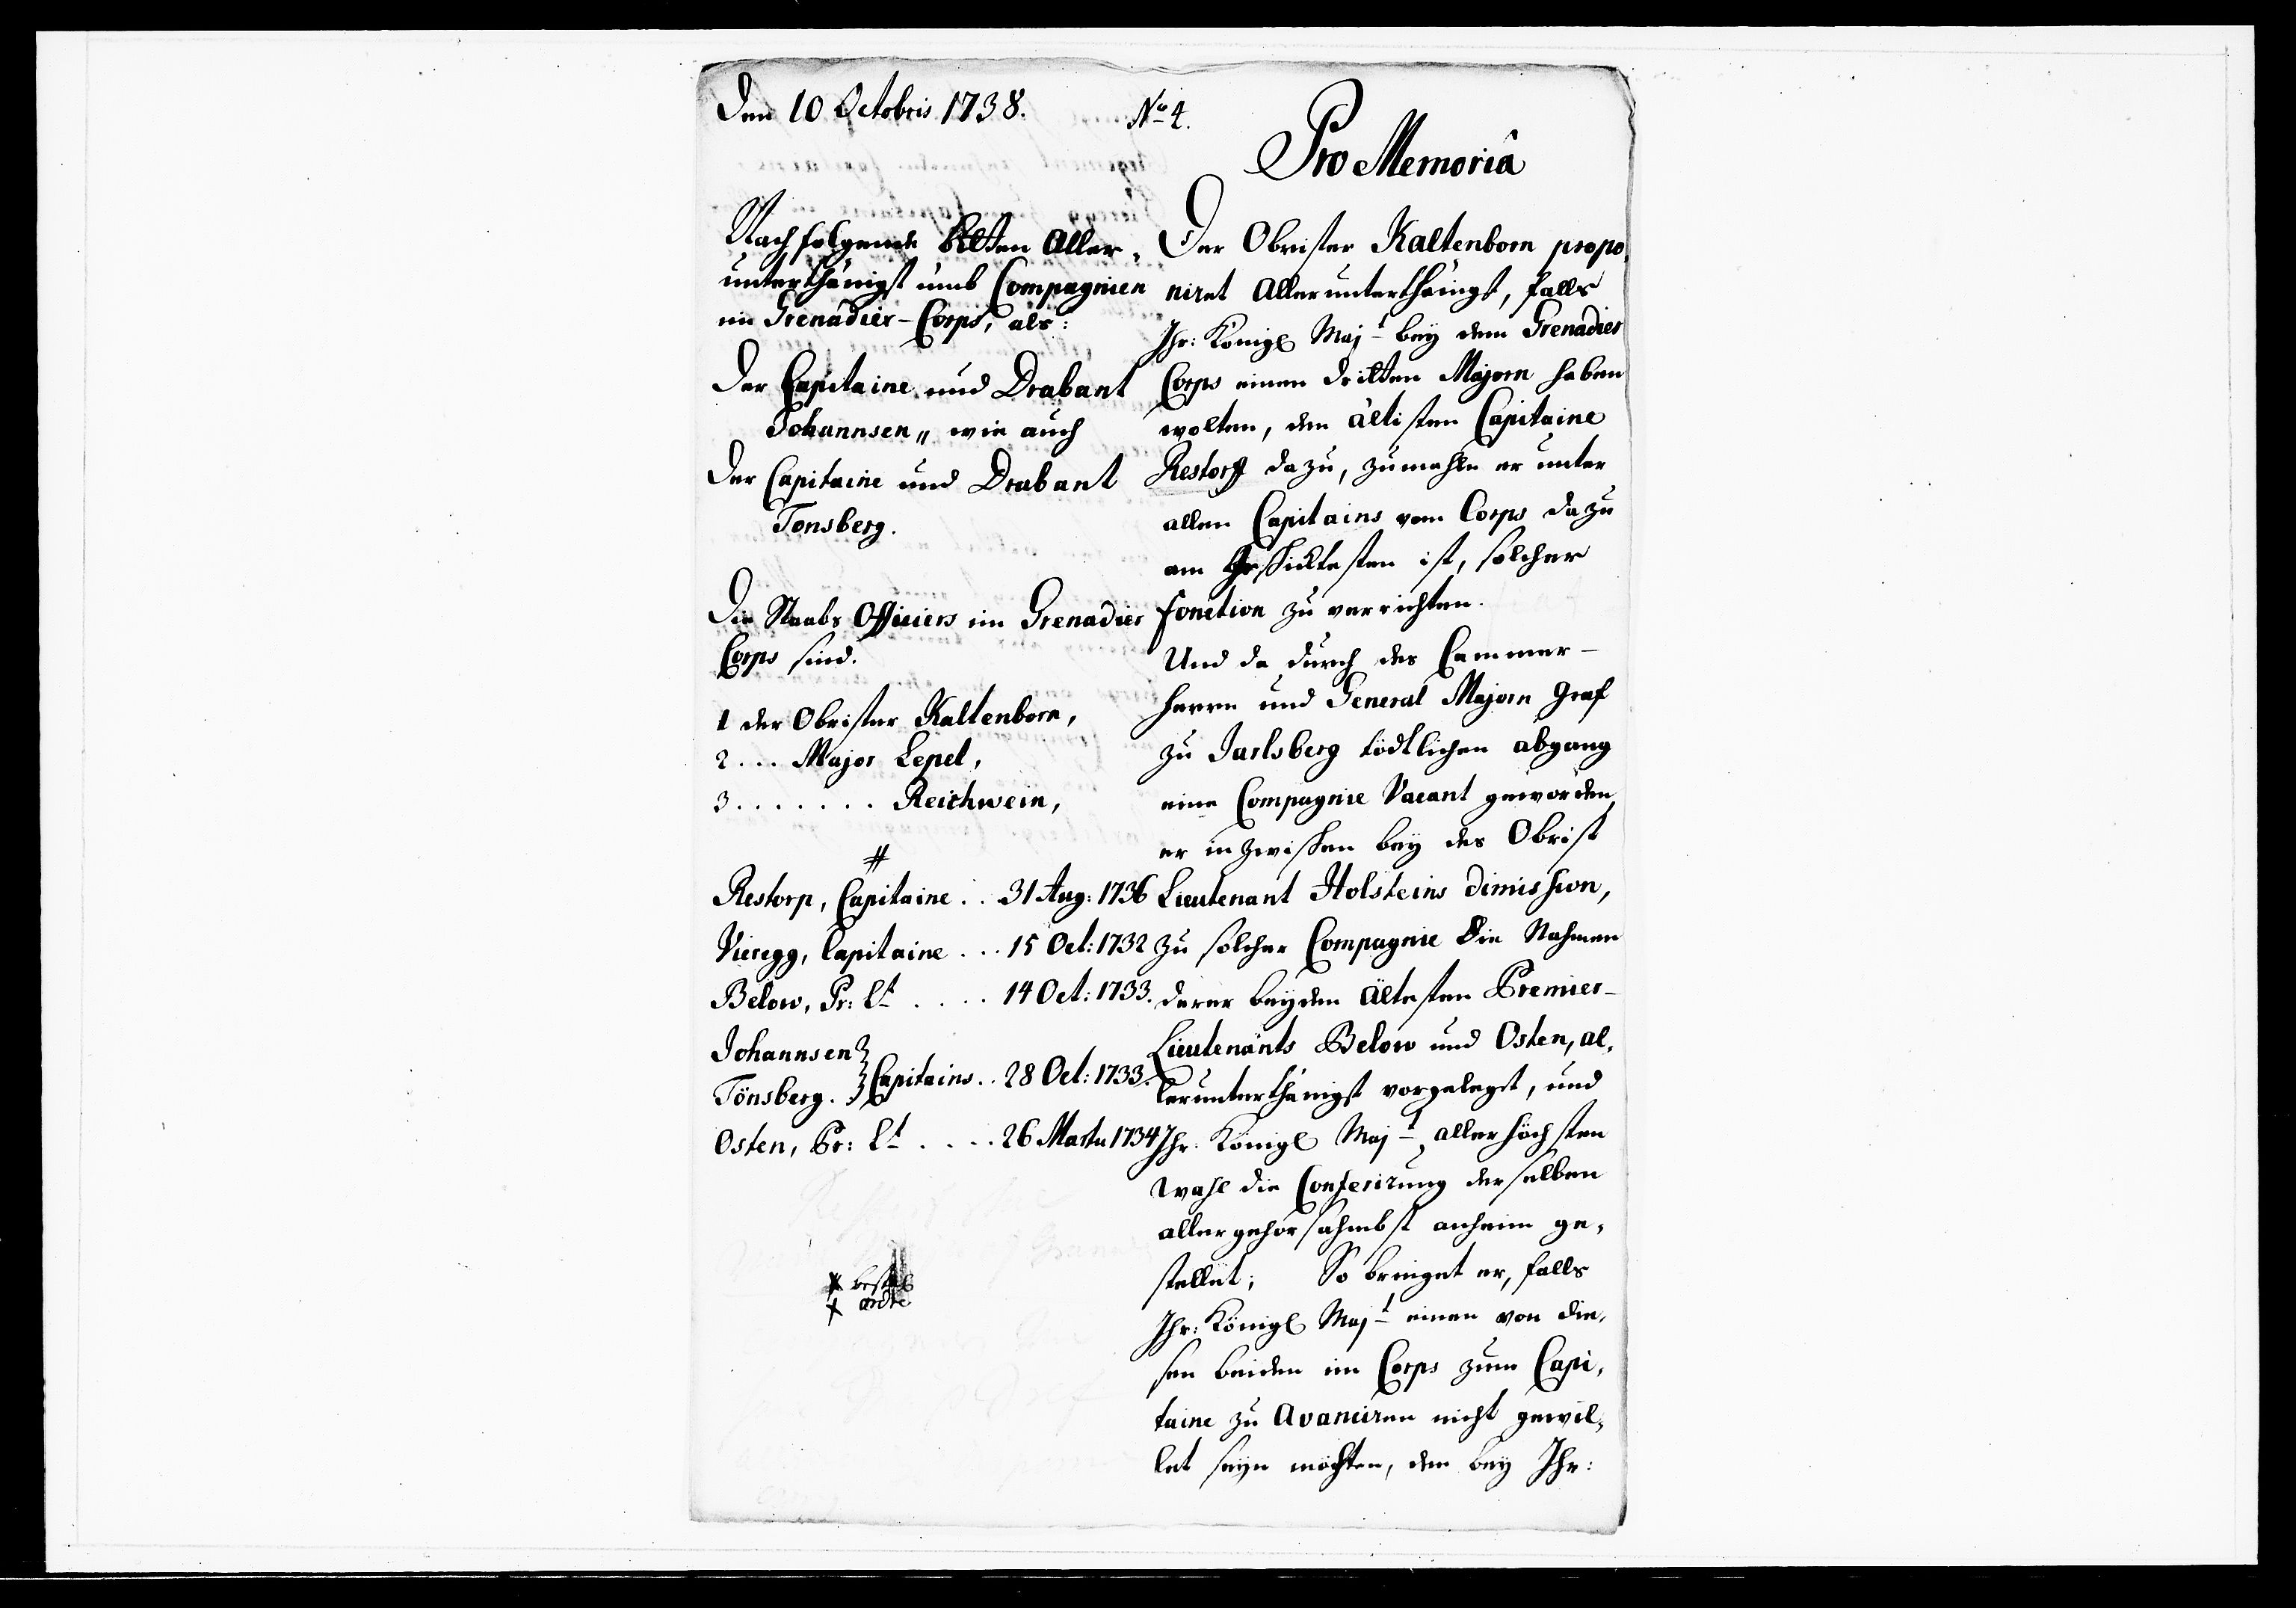 Den 10 Octobris 1738.
No 4.
Pro Memoriâ
Nachfolgende bitten Aller,
unterthänigst umb Compagnien
im Grenadier-Corps, als:
Der Capitaine und Drabant
Johannsen,, wie auch
Der Capitaine und Drabant
Tonsberg.
Die Staabs Officiers im Grenadier
Corps sind.
1 der Obrister Kaltenborn,
2 ... Major Lepel,
3 ....... Reichwein,
#
Restorp, Capitaine .. 31 Aug: 1736
Vieregg, Capitaine ... 15 Oct: 1732
Below, Pr: Lt .... 14 Oct: 1733.
Johannsen
Tönsberg. } Capitains .. 28 Oct: 1733.
Osten, Pr: Lt .... 26 Martii 1734
Der Obrister Kaltenborn propo,
niret Allerunterthänigst, falls
Ihr: Königl Majt bey dem Grenadier
Corps einen dritten Majorn haben
wolten, den ältisten Capitaine
Restorff dazu, zumahln er unter
allen Capitains vom Corps dazu
am Geschicktesten ist, solcher
fonction zu verrichten.
Und da durch des Cammer-
herrn und General Majorn Graf
zu Jarlsberg tödtlichen abgang
eine Compagnie Vacant geworden,
er inzwischen bey des Obrist
Lieutenant Holsteins dimission,
zu solcher Compagnie die Nahmen
derer beyden Ältesten Premier-
Lieutenants Below und Osten, al,
lerunterthänigst vorgelegt, und
Ihr: Königl Majt allerhöchsten
wahl die Conferirung derselben
allergehorsahmbst anheim ge,
stellet; So bringet er, falls
Ihr: Königl Majt einen von die,
sen beiden im Corps zum Capi,
taine zu Avanciren nicht gewil,
let seyn möchten, den bey Ihr: